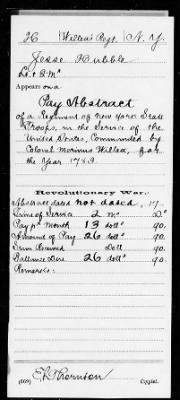 H | Willett's Regt. | N. Y.
Jesse Hubble
Appears on a
Pay Abstract
of a Regiment of new York State
Troops, in the Service of the
United States Commanded by
Colonel Marinus Willett, for
the Year 1783.
Revolutionary War.
Abstract dated not dated, 17
Time of Service 2 Ms Ds
Pay pr Month 13 dolls 90.
Amount of Pay 26 dolls 90.
Sum Received Doll 90.
Ballance Due 26 dolls 90.
Remarks:
E. Thornton
Copyist.